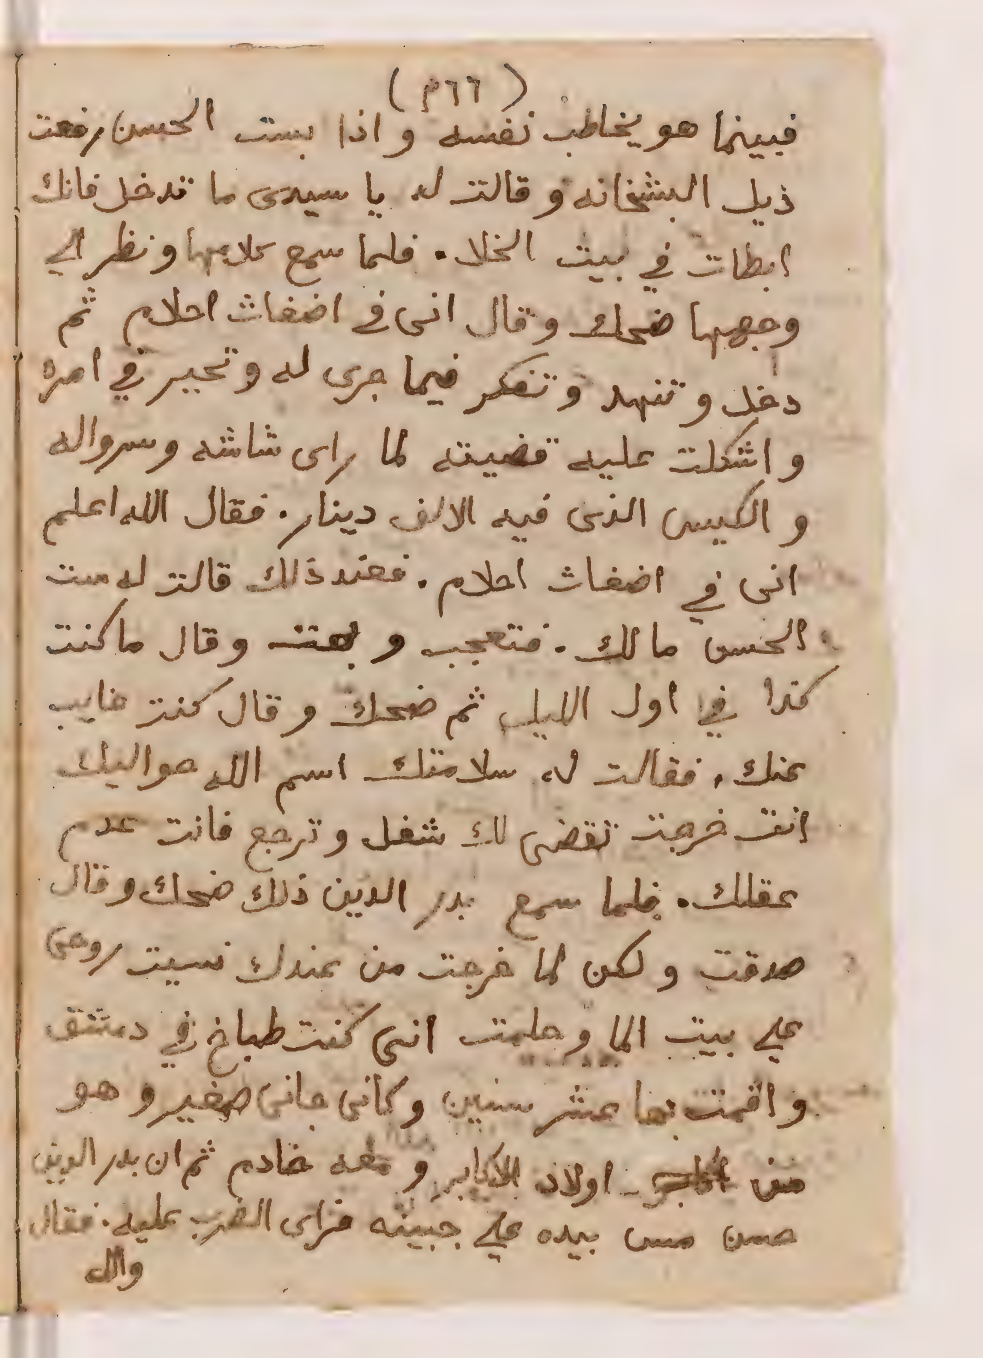 (٦٦م)
فبينما هو يخاطب نفسه واذا بست الحسن رفعت
ذيل البشخانه وقالت له يا سيدى ما تدخل فانك
ابطات في بيت الخلا. فلما سمع كلامها ونظر الي
وجهها ضحك وقال انى في اضغاث احلام ثم
دخل وتنهد وتفكر فيما جرى له وتحير في امره
واشكلت عليه قضيته لما راى شاشه وسرواله
والكيس الذى فيه الالف دينار. فقال الله اعلم
انى في اضغاث احلام. فعند ذلك قالت له ست
الحسن مالك. فتعجب وبهت وقال ما كنت
كذا في اول الليل ثم ضحك وقال كنت غايب
عنك. فقالت له سلامتك اسم الله حواليك
انت خرجت تقضى لك شغل وترجع فانت عدم
عقلك. فلما سمع بدر الدين ذلك ضحك وقال
صدقت ولكن لما خرجت من عندك نسيت روحى
علي بيت الما وحلمت انى كنت طباخ في دمشق
واقمت بها عشر سنين وكانى جانى صغير وهو
من اولاد الاكابر ومعه خادم ثم ان بدر الدين
حسن مس بيده علي جبينه فراى الضرب عليه. فقال
والله